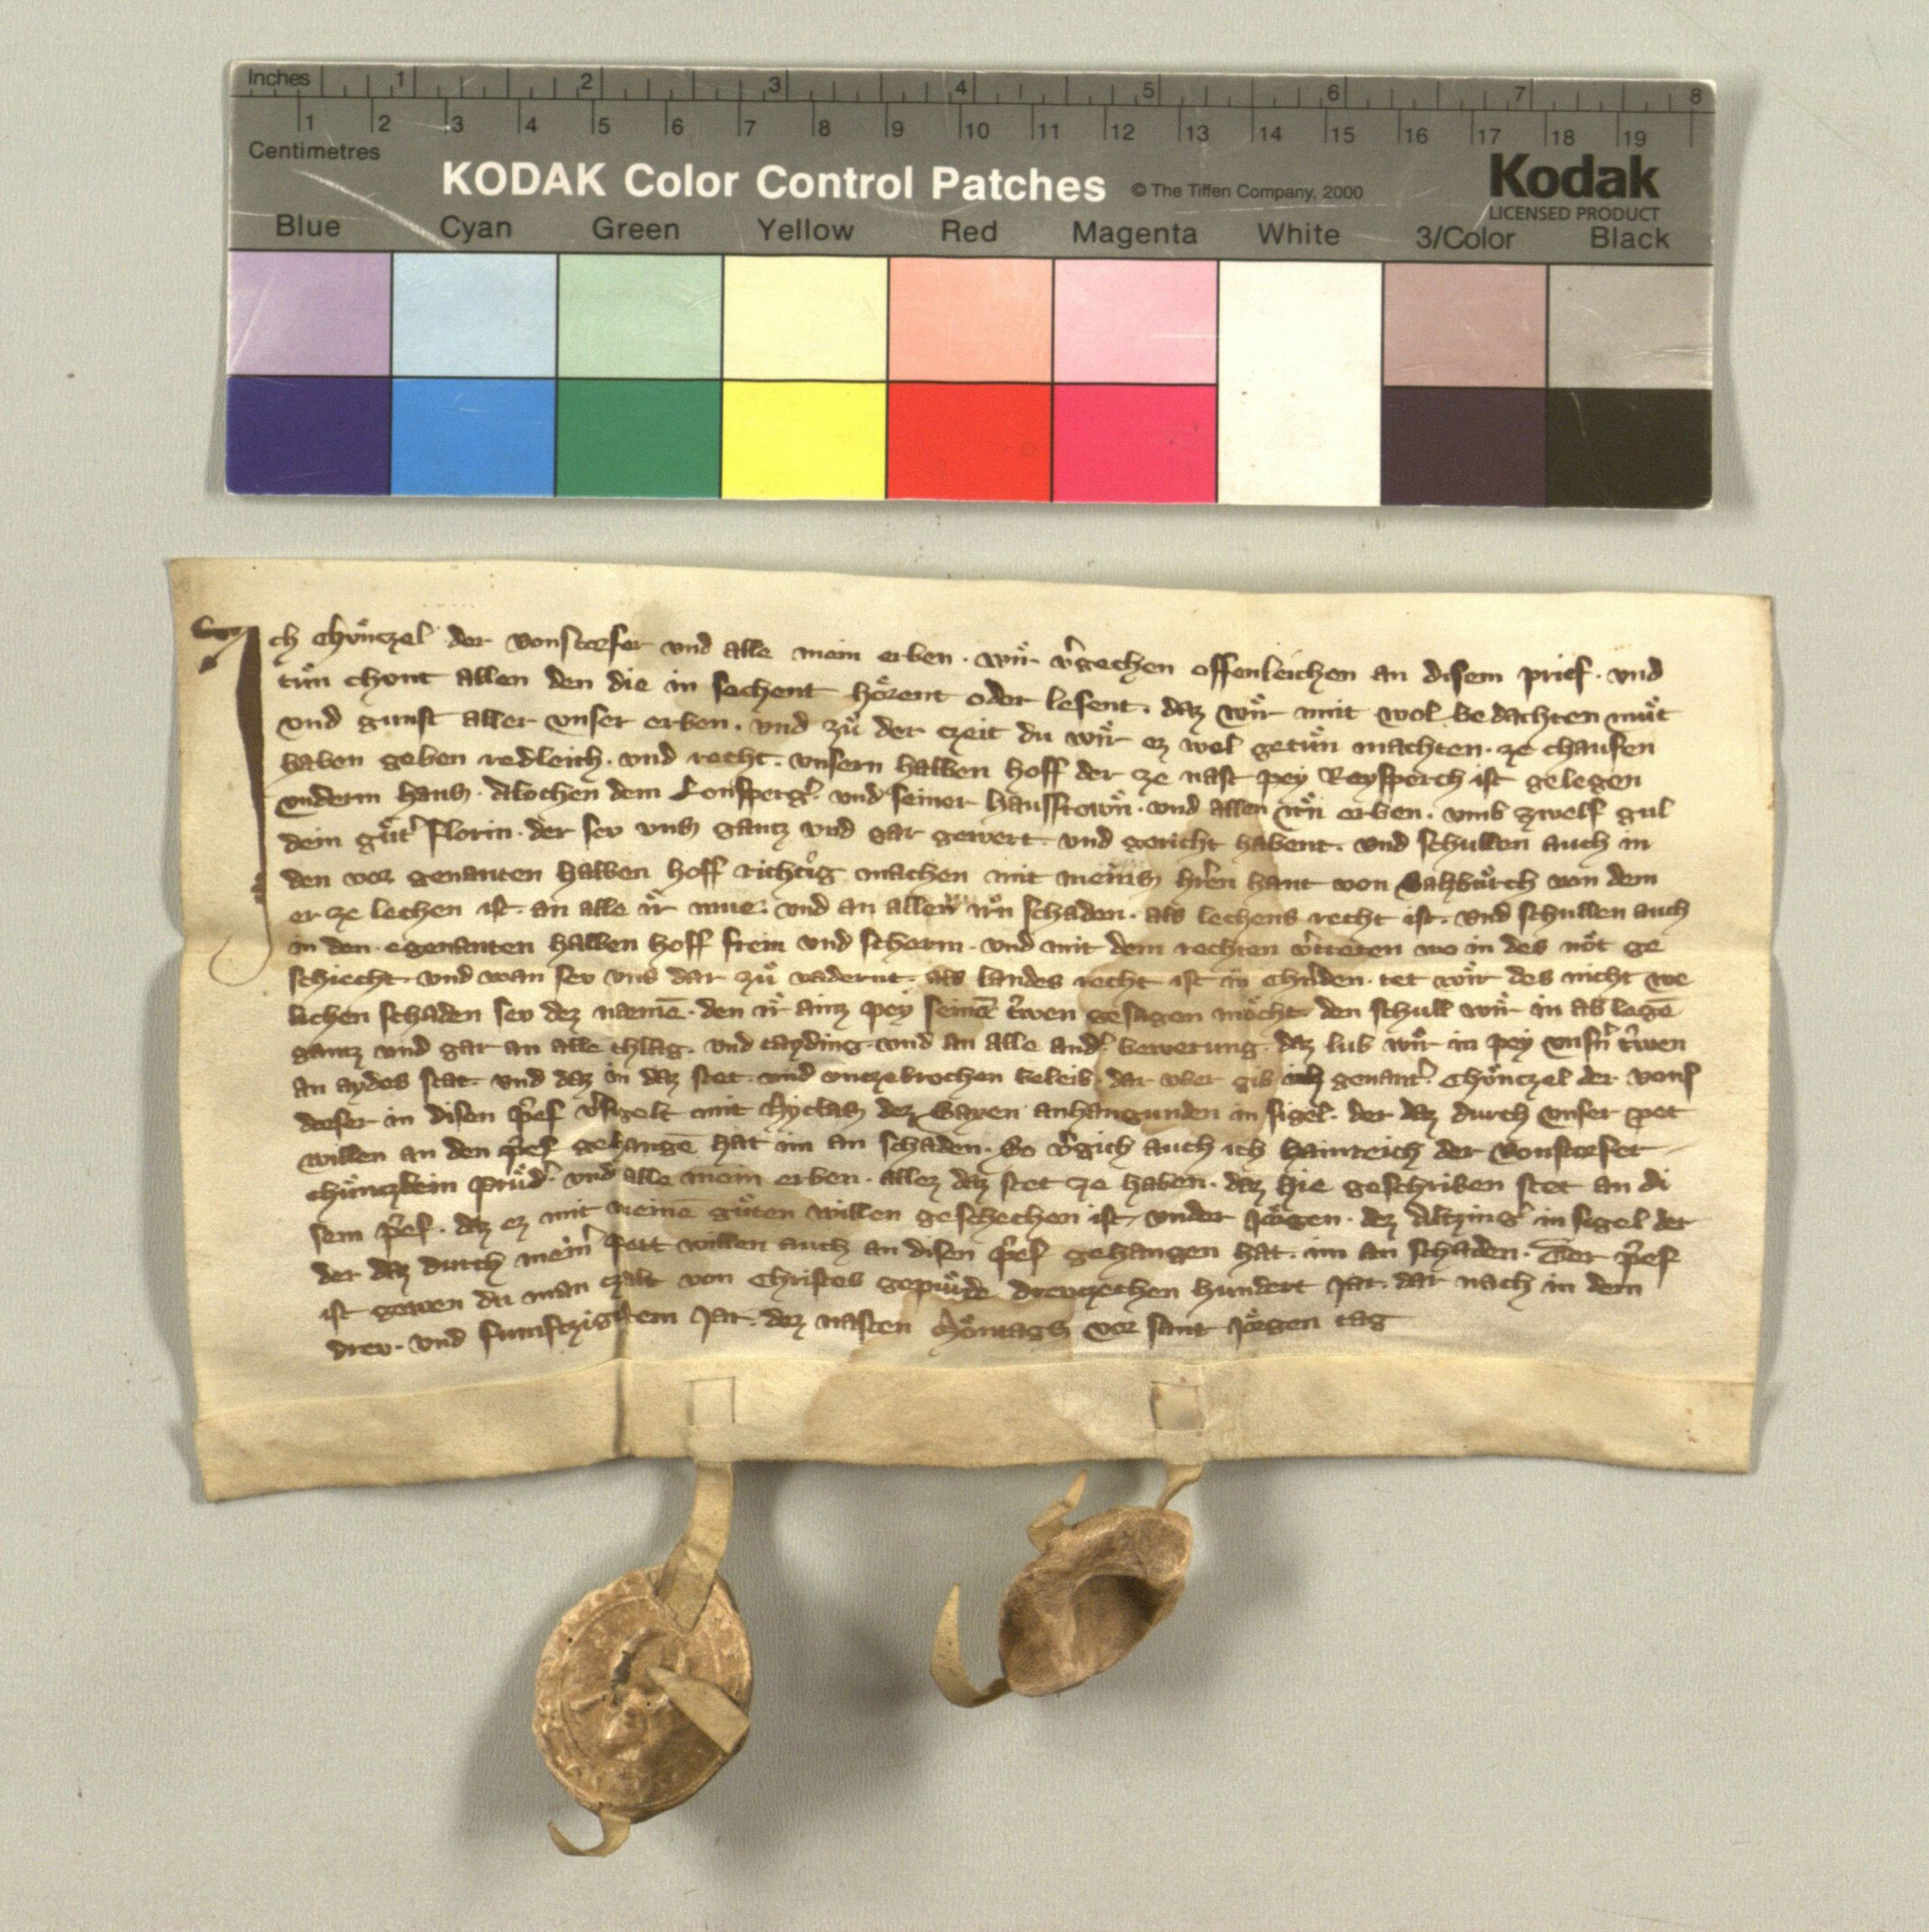 Inches 1 2 3 4 5 6 7 8
1 2 3 4 5 6 7 8 9 10 11 12 13 14 15 16 17 18 19
Centimetres
KODAK Color Control Patches © The Tiffen Company, 2000 Kodak
LICENSED PRODUCT
Blue Cyan Green Yellow Red Magenta White 3/Color Black
Ich Chuͤnczel der Vonstorfer vnd alle mein erben · wir v͛gechen offenleichen an disem prief · vnd
tuͤn chunt allen den die in sechent hoͤrent oder lesent · daz wir mit wol bedachten muͤt
vnd gunst aller vnser erben · vnd zuͦ der czeit du wir ez wol getuͤn machten · ze chaufen
haben geben redleich · vnd recht · vnsern halben hoff der ze nast pey Reysperch ist gelegen
vnderm haus · dem · vnd seiner hausfrown · vnd allen irn erben · vmb zwelf gul
dein guͤt͛ florin · der sev vns gantz vnd gar gewert · vnd gericht habent · vnd schullen auch in
den vor genanten halben hoff richtig machen mit meins h͛ren hant von Salzburch von dem
er ze lechen ist · an alle ir mue · vnd an allen irn schaden · als lechens recht ist · vnd schullen auch
in den egenanten halben hoff frein vnd scherm · vnd mit dem rechten v͛treten wo in des noͤt ge
schiecht · vnd wan sev vns dar zuͦ vadernt · als landes recht ist in · tet wir des nicht we
lichen schaden sev dez nēmē · den ir ainz pey seinē t͛wen gesagen moͤcht · den schull wir in ab legē
gantz vnd gar an alle chlag · vnd tayding · vnd an alle and͛ bewerung · daz lub wir in pey vnsn͛ t͛wen
an aydes stat · vnd daz in daz stet · vnd vnczebrochen beleib · dar vber gib ich genant͛ Choͤnczel der Vons
dorfer in disen p͛ef v͛sigelt mit Nyclas dez anhangunden in sigel · der daz durch vnser pet
willen an den p͛ef gehangē hat im an schaden · So v͛gich auch ich Hainreich der Vonstorfer
pruͤd͛ · vnd alle mein erben · allez daz stet ze haben · daz hie geschriben stet an di
sem p͛ef · daz ez mit meinē guͤten willen geschechen ist · vnder Joͤrgen · dez in sigel der
der daz durch meïn͛ pett willen auch an disen p͛ef gehangen hat · im an schaden · Der p͛ef
ist geben du man czalt von Christes gepuͤrde drevczechen hundert Jar · dar nach in dem
drev · vnd funfczigistem Jar · dez nasten Moͤntags vor sant Joͤrgen tag